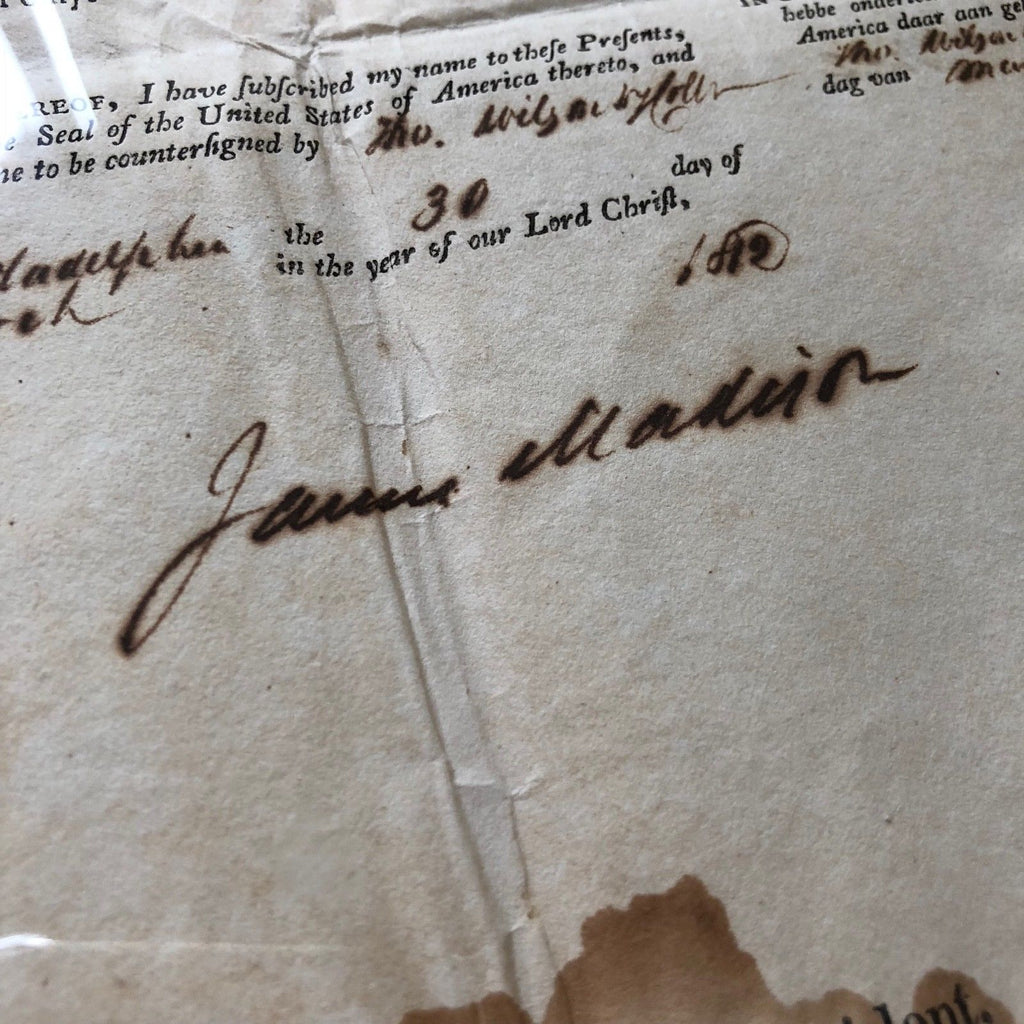 REOF, I have ſubſcribed my name to theſe Preſents,
e Seal of the United States of America thereto, and
ne to be counterſigned by Tho.
ladelphia the 30 day of
in the year of our Lord Chriſt,
1812
James Madison
hebbe onder
America daar aan ge
Tho.
dag van
ident,